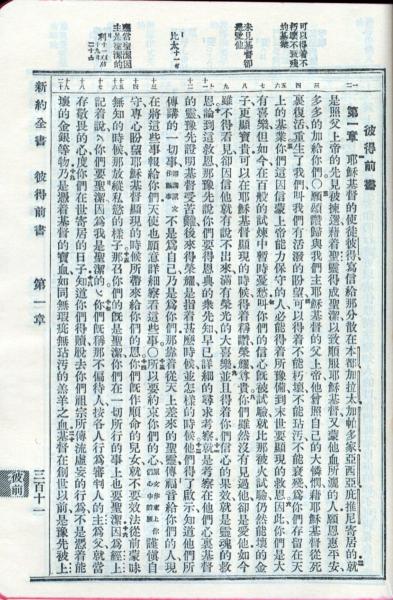 可以得着不
朽壞不衰殘
的基業
未見基督卻
愛他
比太十一章
應當聖潔因
主是聖潔的
彼得前書
第一章 耶穌基督的使徒彼得寫信給那分散在本都加拉太加帕多家亞西亞庇推尼寄居的就
是照父上帝的先見被揀選藉着聖靈得成聖潔以致順服耶穌基督又蒙他血所灑的人願恩惠平安
多多的加給你們○願頌讚歸與我們主耶穌基督的父上帝他曾照自己的大憐憫藉耶穌基督從死
裏復活重生了我們叫我們有活潑的盼望可以得着不能朽壞不能玷污不能衰殘為你們存留在天
上的基業你們這因信蒙上帝能力保守的人必能得着所預備到末世要顯現的救恩因此你們是大
有喜樂但如今在百般的試煉中暫時憂愁叫你們的信心既被試驗就比那被火試驗仍然能壞的金
子更顯寶貴可以在耶穌基督顯現的時候得着稱讚榮耀尊貴你們雖然沒有見過他卻是愛他如今
雖不得看見卻因信他就有說不出來滿有榮光的大喜樂並且得着你們信心的果效就是靈魂的救
恩論到這救恩那豫先說你們要得恩典的眾先知早已詳細的尋求考察就是考察在他們心裏基督
的靈豫先證明基督受苦難後來得榮耀是指着甚麼時候並怎樣的時候他們得了啟示知道他們所
傳講的一切事不是為自己乃是為你們那靠着從天上差來的聖靈傳福音給你們的人現
在將這些事報給你們天使也願意詳細察看這些事○所以要約束你們的心謹慎自
守專心盼望耶穌基督顯現的時候所帶來給你們的恩你們既作順命的兒女就不要效法從前蒙昧
無知的時候那放縱私慾的樣子那召你們的既是聖潔你們在一切所行的事上也要聖潔因為經上
記着說你們要聖潔因為我是聖潔的你們既稱那不偏待人按各人行為審判人的主為父就當
存敬畏的心度你們在世寄居的日子知道你們得贖脫去你們祖宗所傳流虛妄的行為不是憑着能
壞的金銀等物乃是憑着基督的寶血如同無瑕疵無玷污的羔羊之血基督在創世以前是豫先被上
新約全書 彼得前書 第一章
三百十一
彼前